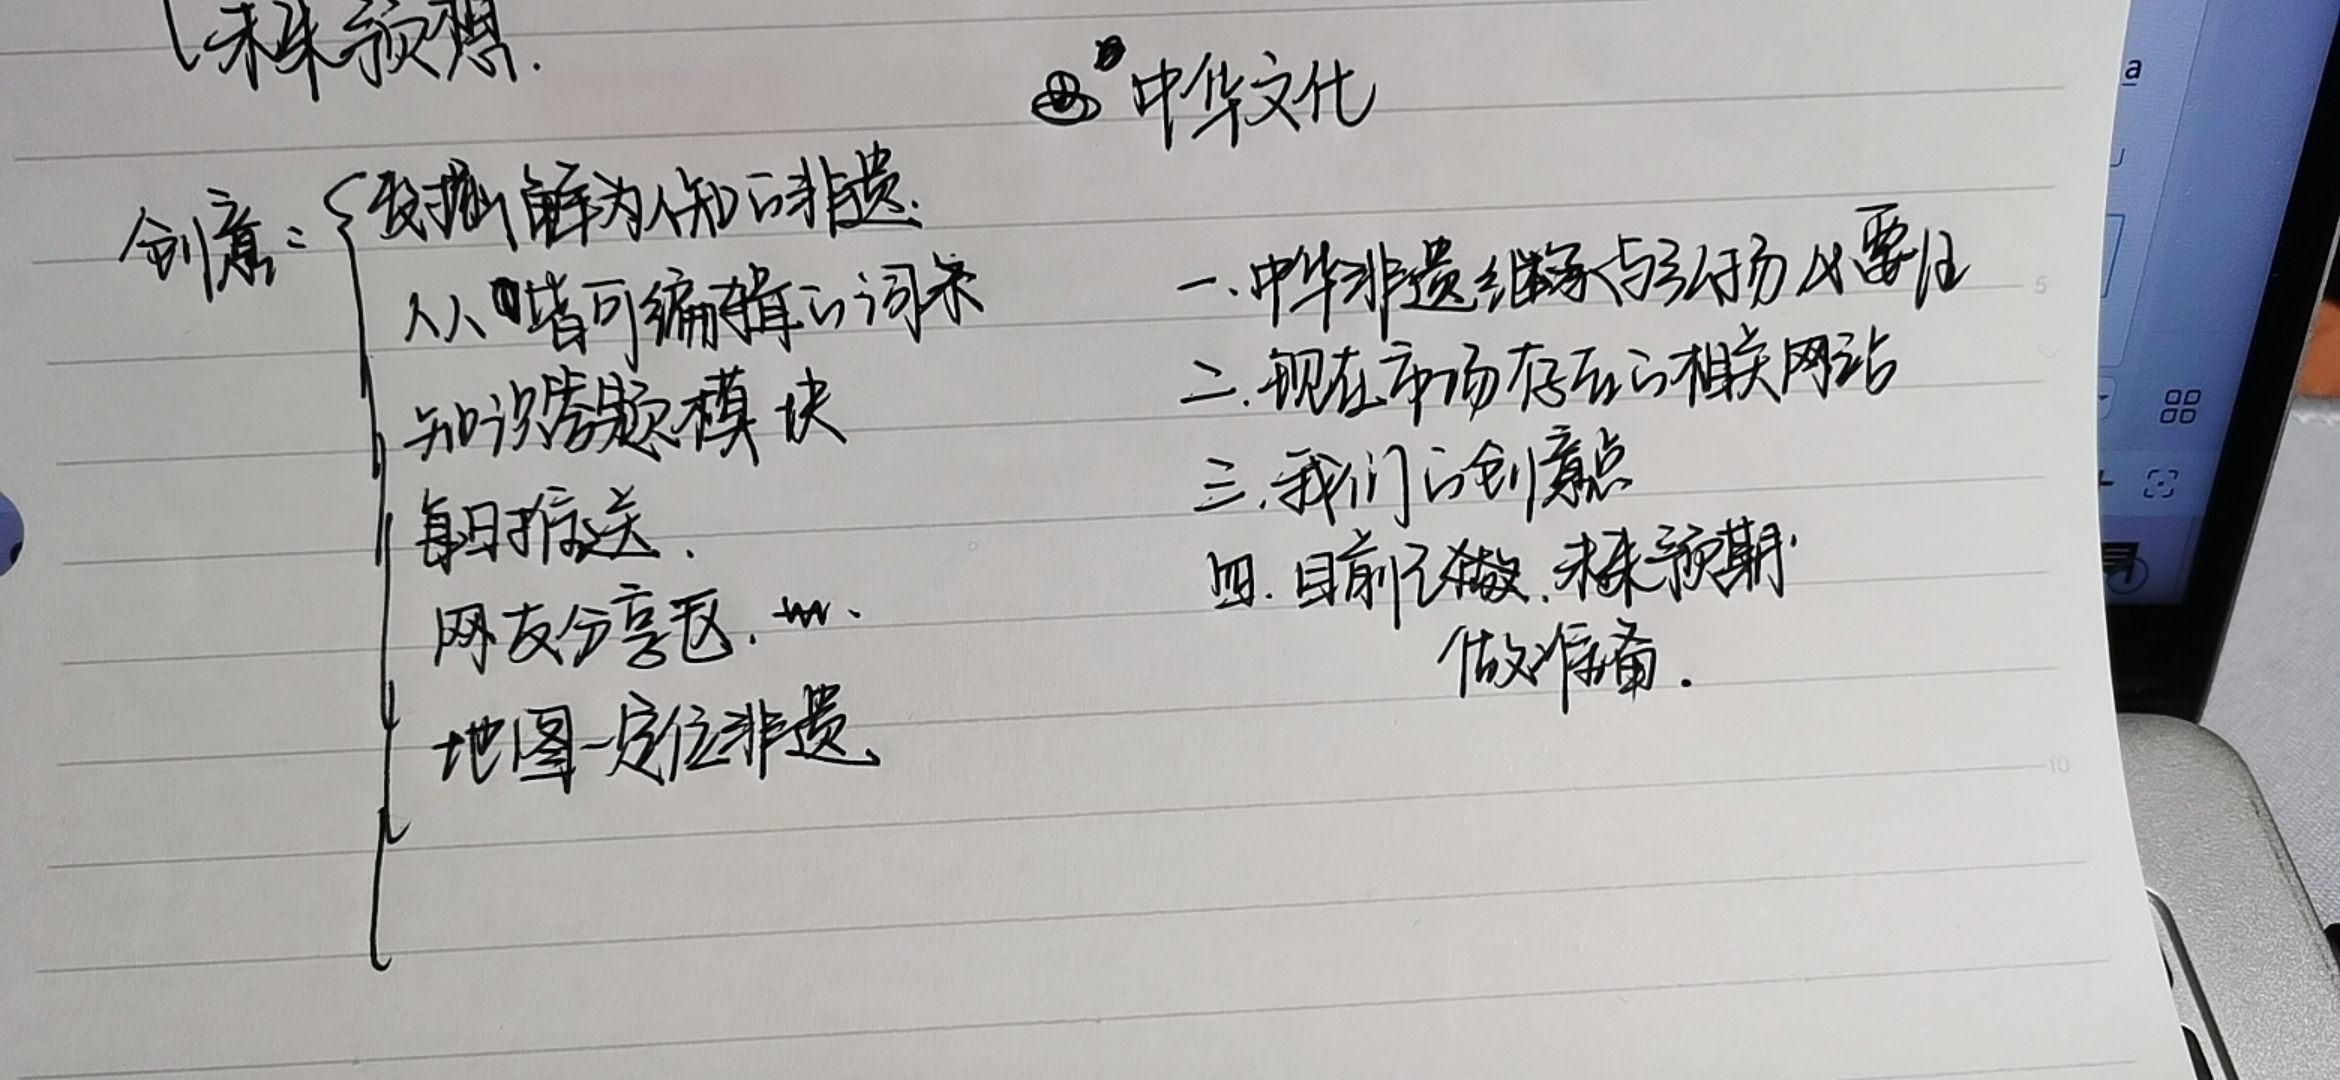 未来预想.
中华文化
创意:
发掘鲜为人知的非遗.
人人皆可编辑的词条
知识答题模块
每日推送.
网友分享区.
地图-定位非遗.
一.中华非遗继承与弘扬必要性
二.现在市场存在的相关网站
三.我们的创意点
四.目前已做.未来预期.
做准备.
5
10
a